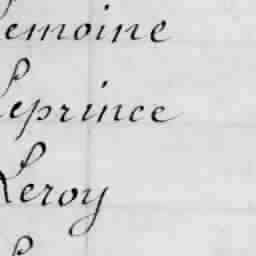 Lemoine
Leprince
Leroy